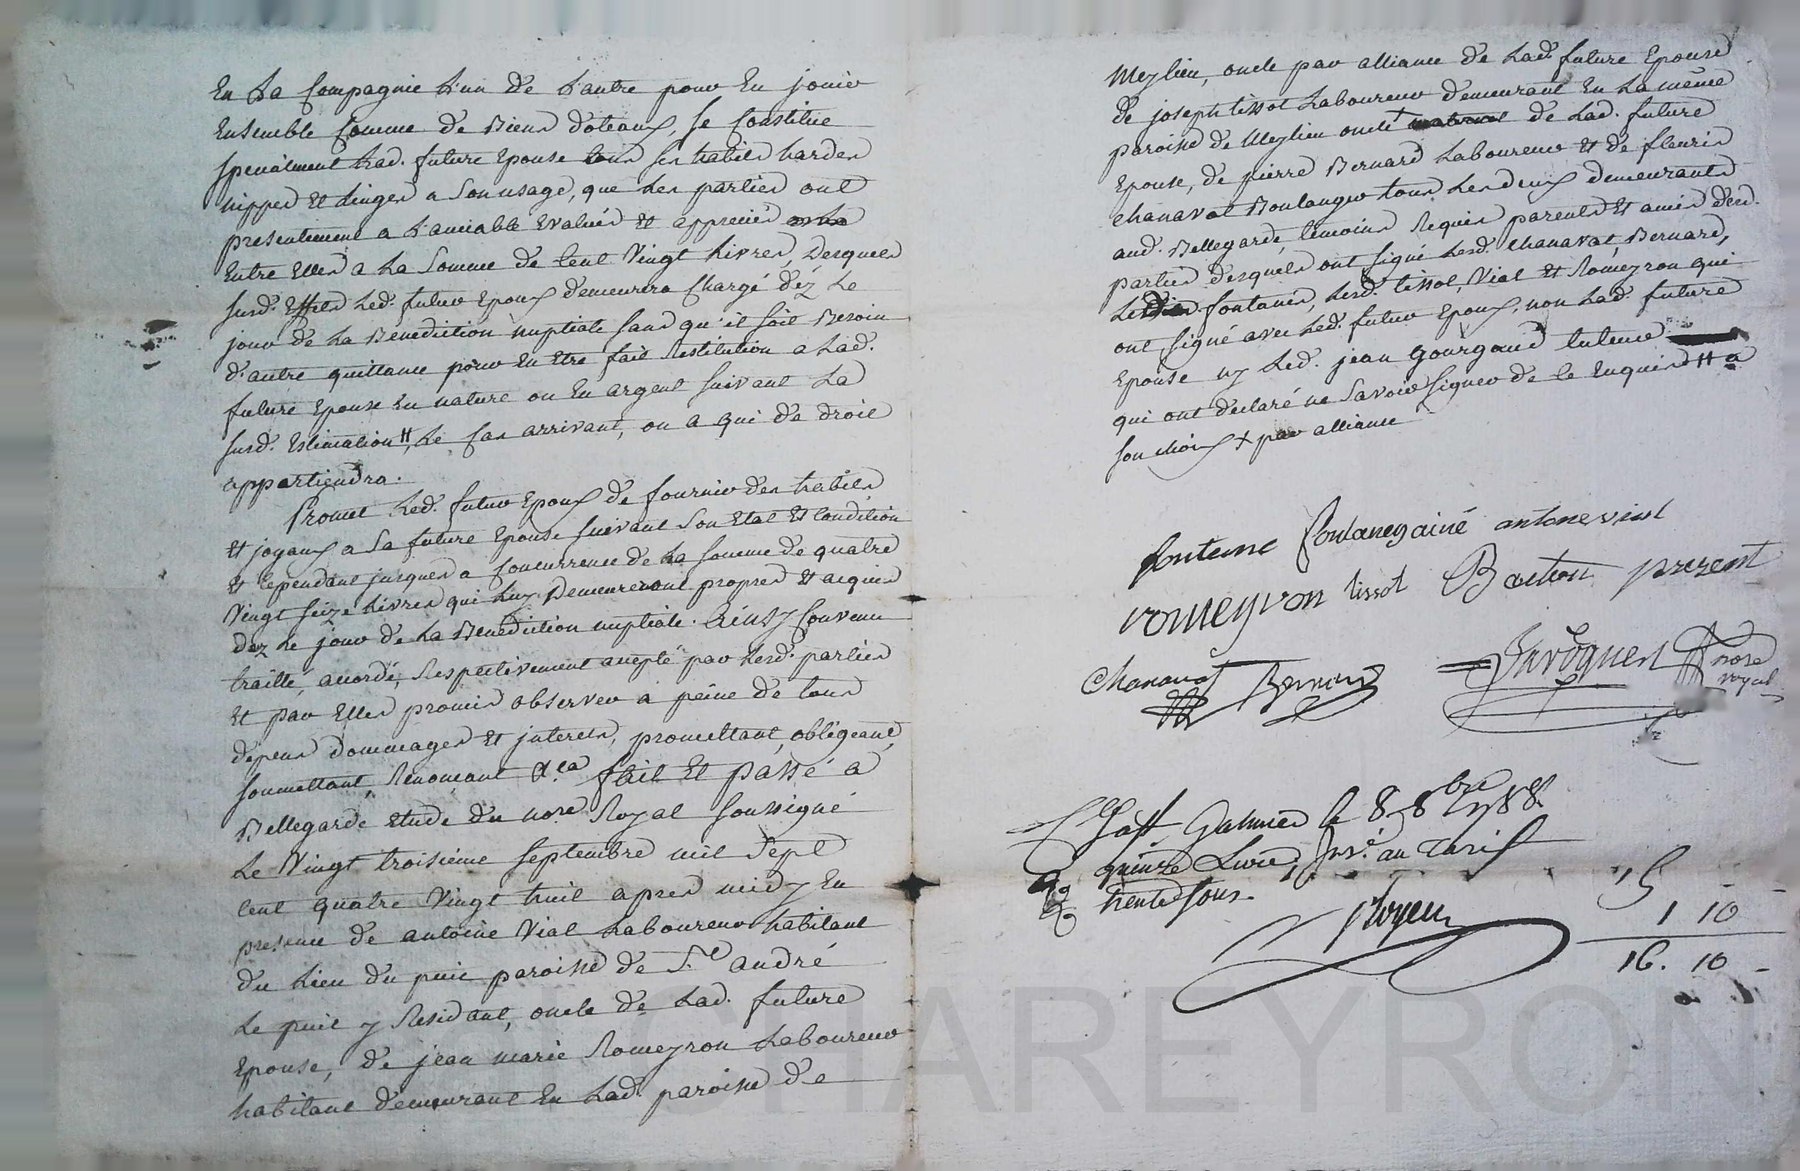 En La Compagnie L'un de L'autre pour En jouir
Ensemble Comme de Biens doteaux, se Constitue
specialment Lad. future Epouse tous ses habits hardes
nippes et Linges a son usage, que Les parties ont
presentement a L'amiable Evalués et appreciés
Entre Elles a La Somme de Cent Vingt Livres, Desquels
susd. Effets Led. futur Epoux demeurera Chargé déz Le
jour de La Benediction nuptiale sans qu'il soit Besoin
d'autre quittance pour En Etre fait Restitution a Lad.
future Epouse En nature ou En argent suivant La
susd. Estimation #, Le Cas arrivant, ou a qui de droit
appartiendra.
Promet Led. futur Epoux de fournir des habits
et joyaux a Sa future Epouse suivant Son Etat et Condition
et Cependant jusques a Concurrence de La Somme de quatre
Vingt seize Livres qui Luy Demeureront propres et acquis
dez Le jour de La Benediction nuptiale. Ainsy Convenu
traitté, accordé, Respectivement accepté par Lesd. parties
et par Elles promis observer a peine de tous
depens dommages et interets, promettant, obligeant,
soumettant, Renonçant &.ca fait et passé a
Bellegarde Etude du nore Royal soussigné
Le Vingt troisieme septembre mil sept
Cent quatre Vingt huit apres midy En
presence de antoine Vial Laboureur habitant
du Lieu du puit paroisse de St andré
Le puit y Residant, oncle de Lad. future
Epouse, de jean marie Romeyron Laboureur
habitant demeurant En Lad. paroisse de
Meylieu, oncle par alliance de Lad. future Epouse
de joseph tissot Laboureur demeurant En La même
paroisse de Meylieu oncle + de Lad. future
Epouse, de pierre Bernard Laboureur et de fleuris
Chanavat Boulanger tous Les deux demeurants
aud. Bellegarde, temoins Requis parents et amis desd.
parties desquels ont signé Lesd. Chanavat, Bernard,
fontanes, Lesd. tissot, Vial et Romeyron qui
ont signé avec Led. futur Epoux, non Lad. future
Epouse ny Led. jean Gourgaud
qui ont declaré ne Savoir signer de Ce Enquis # a
son choix + par alliance
fontane fontanes ainé antone vial
romeyron tissot present
Chanavat Bernard nore
royal
Galmier le 8 8bre 1788
quinze Livres, au tarif
trente sous.
15 - -
1 10
16. 10 -
CHAREYRON